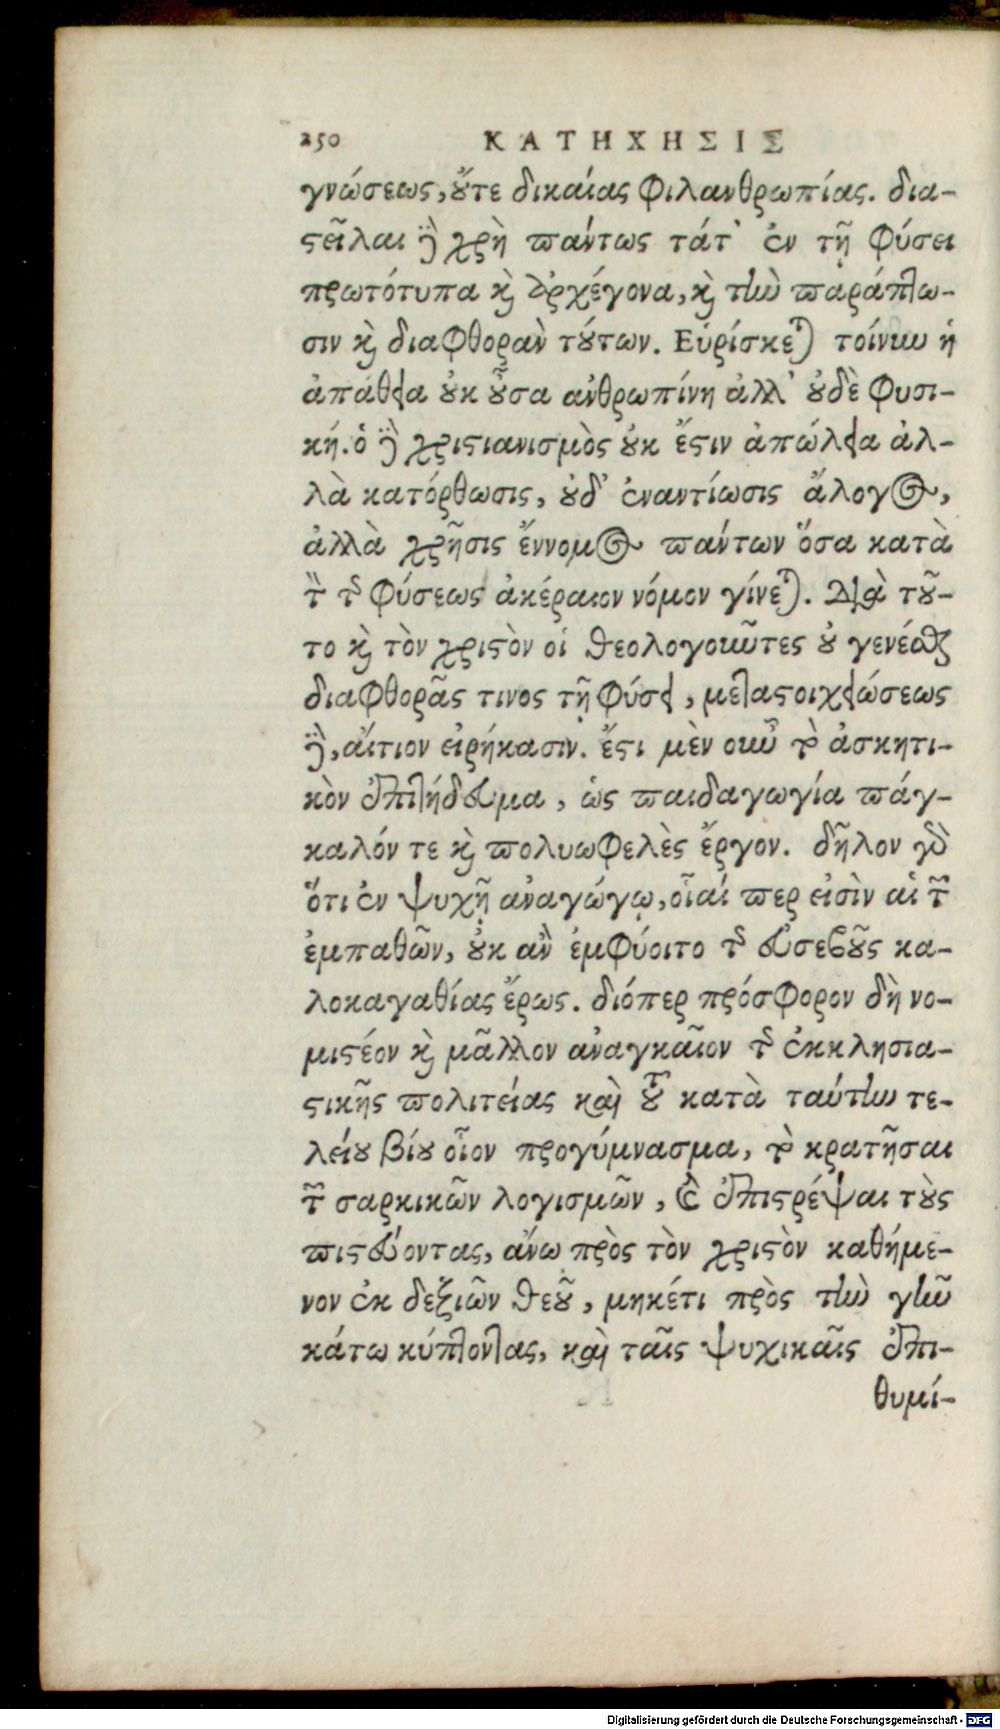 250 ΚΑΤΗΧΗΣΙΣ
γνώσεως, ȣ́τε δικαίας φιλανθρωπίας. δια-
στεῖλαι δὲ χρὴ πάντως τάτ' ἐν τῇ φύσει
πρωτότυπα καὶ ἀρχέγονα, καὶ τὴν παράπτω-
σιν καὶ διαφθορὰν τούτων. Εὑρίσκεται τοίνυν ἡ
ἀπάθεια οὐκ οὖσα ἀνθρωπίνη ἀλλ' οὐδὲ φυσι-
κή. ὁ δὲ χριστιανισμὸς οὐκ ἔστιν ἀπώλεια ἀλ-
λὰ κατόρθωσις, οὐδ' ἐναντίωσις ἄλογος,
ἀλλὰ χρῆσις ἔννομος πάντων ὅσα κατὰ
τὸν τῆς φύσεως ἀκέραιον νόμον γίνεται. Διὰ τοῦ-
το καὶ τὸν χριστὸν οἱ θεολογοῦντες οὐ γενέσθαι
διαφθορᾶς τινος τῇ φύσει, μεταστοιχειώσεως
δὲ, αἴτιον εἰρήκασιν. ἔστι μὲν οὖν τὸ ἀσκητι-
κὸν ἐπιτήδευμα, ὡς παιδαγωγία πάγ-
καλόν τε καὶ πολυωφελὲς ἔργον. δῆλον γὰρ
ὅτι ἐν ψυχῇ ἀναγώγῳ, οἷαί περ εἰσὶν αἱ τῶν
ἐμπαθῶν, οὐκ ἂν ἐμφύοιτο τῆς εὐσεβοῦς κα-
λοκαγαθίας ἔρως. διόπερ πρόσφορον δὴ νο-
μιστέον καὶ μᾶλλον ἀναγκαῖον τῆς ἐκκλησια-
στικῆς πολιτείας καὶ τοῦ κατὰ ταύτην τε-
λείου βίου οἷον προγύμνασμα, τὸ κρατῆσαι
τῶν σαρκικῶν λογισμῶν, καὶ ἐπιστρέψαι τοὺς
πιστεύοντας, ἄνω πρὸς τὸν χριστὸν καθήμε-
νον ἐκ δεξιῶν θεοῦ, μηκέτι πρὸς τὴν γῆν
κάτω κύπτοντας, καὶ ταῖς ψυχικαῖς ἐπι-
θυμί-
Digitalisierung gefördert durch die Deutsche Forschungsgemeinschaft - DFG